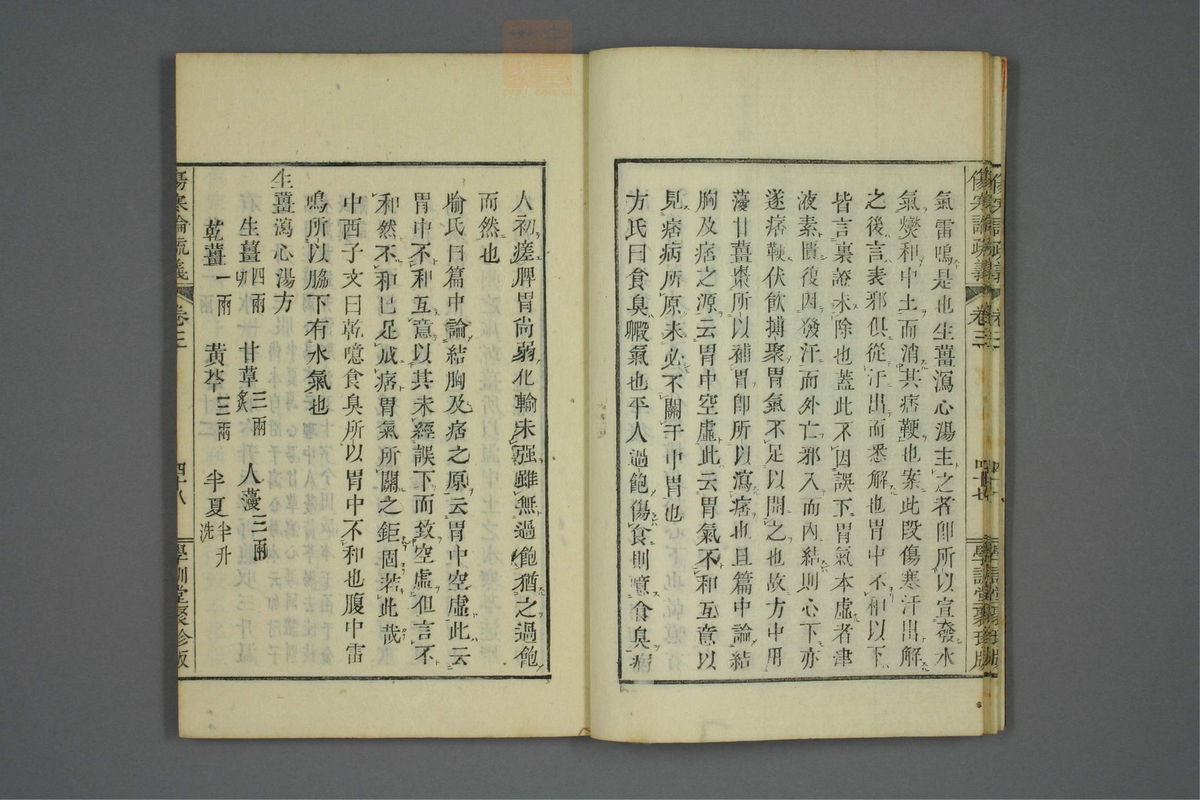 氣雷鳴是也生薑瀉心湯主之者卽所以宣發水
氣燮和中土而消其痞鞕也案此段傷寒汗出解
之後言表邪俱從汗出而悉解也胃中不和以下
皆言裏證未除也蓋此不因誤下胃氣本虛者津
液素匱復因發汗而外亡邪入而內結則心下亦
遂痞鞕伏飮搏聚胃氣不足以開之也故方中用
薓甘薑棗所以補胃卽所以瀉痞也且篇中論結
胸及痞之源云胃中空虛此云胃氣不和互意以
見痞病所原未必不關于中胃也
方氏曰食臭㗇氣也平人過飽傷食則噫食臭病
傷寒論疏義 卷三 四十七 學訓堂聚珍版
人初瘥脾胃尙弱化輸未强雖無過飽猶之過飽
而然也
喻氏曰篇中論結胸及痞之原云胃中空虛此云
胃中不和互意以其未經誤下而致空虛但言不
和然不和已足成痞胃氣所關之鉅固若此哉
中西子文曰乾噫食臭所以胃中不和也腹中雷
鳴所以脇下有水氣也
生薑瀉心湯方
生薑四兩切 甘草三兩炙 人薓三兩
乾薑一兩 黃芩三兩 半夏半升洗
傷寒論疏義 卷三 四十八 學訓堂聚珍版